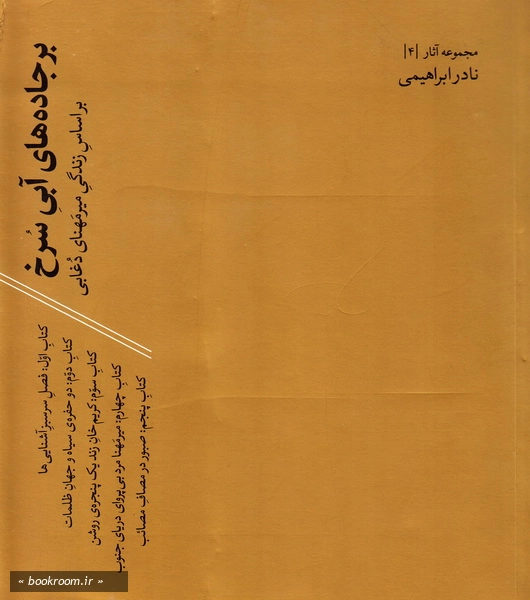 مجموعه آثار |۴|
نادر ابراهیمی
بر جاده‌های آبیِ سُرخ
بر اساسِ زندگیِ میرمَهنای دُغابی
کتابِ اوّل: فصلِ سرسبزِ آشنایی‌ها
کتابِ دوّم: دو حفره‌ی سیاه و جهانِ ظلمات
کتابِ سوّم: کریم‌خانِ زند یک پنجره‌ی روشن
کتابِ چهارم: میرمَهنا مردِ بی‌پروای دریای جنوب
کتابِ پنجم: صبور در مصافِ مصائب
« bookroom.ir »